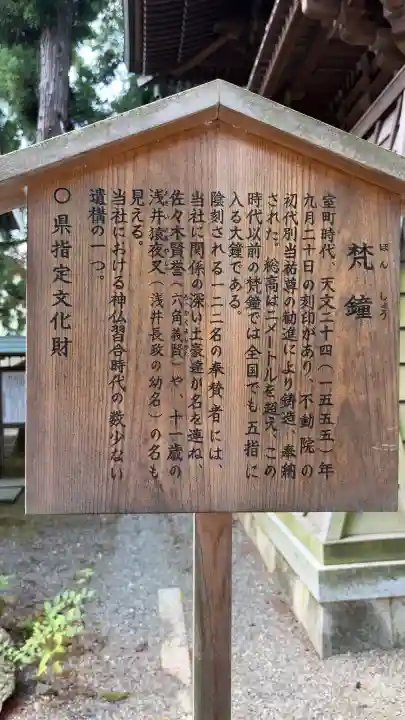 梵鐘
ぼんしょう
室町時代、天文二十四(一五五五)年
九月二十日の刻印があり、不動院の
初代別当祐尊の勧進により鋳造、奉納
された。総高は二メートルを超え、この
時代以前の梵鐘では全国でも五指に
入る大鐘である。
陰刻される一二二名の奉賛者には、
当社に関係の深い土豪達が名を連ね、
佐々木賢誉(六角義賢)や、十一歳の
浅井猿夜叉(浅井長政の幼名)の名も
見える。
当社における神仏習合時代の数少ない
遺構の一つ。
○県指定文化財